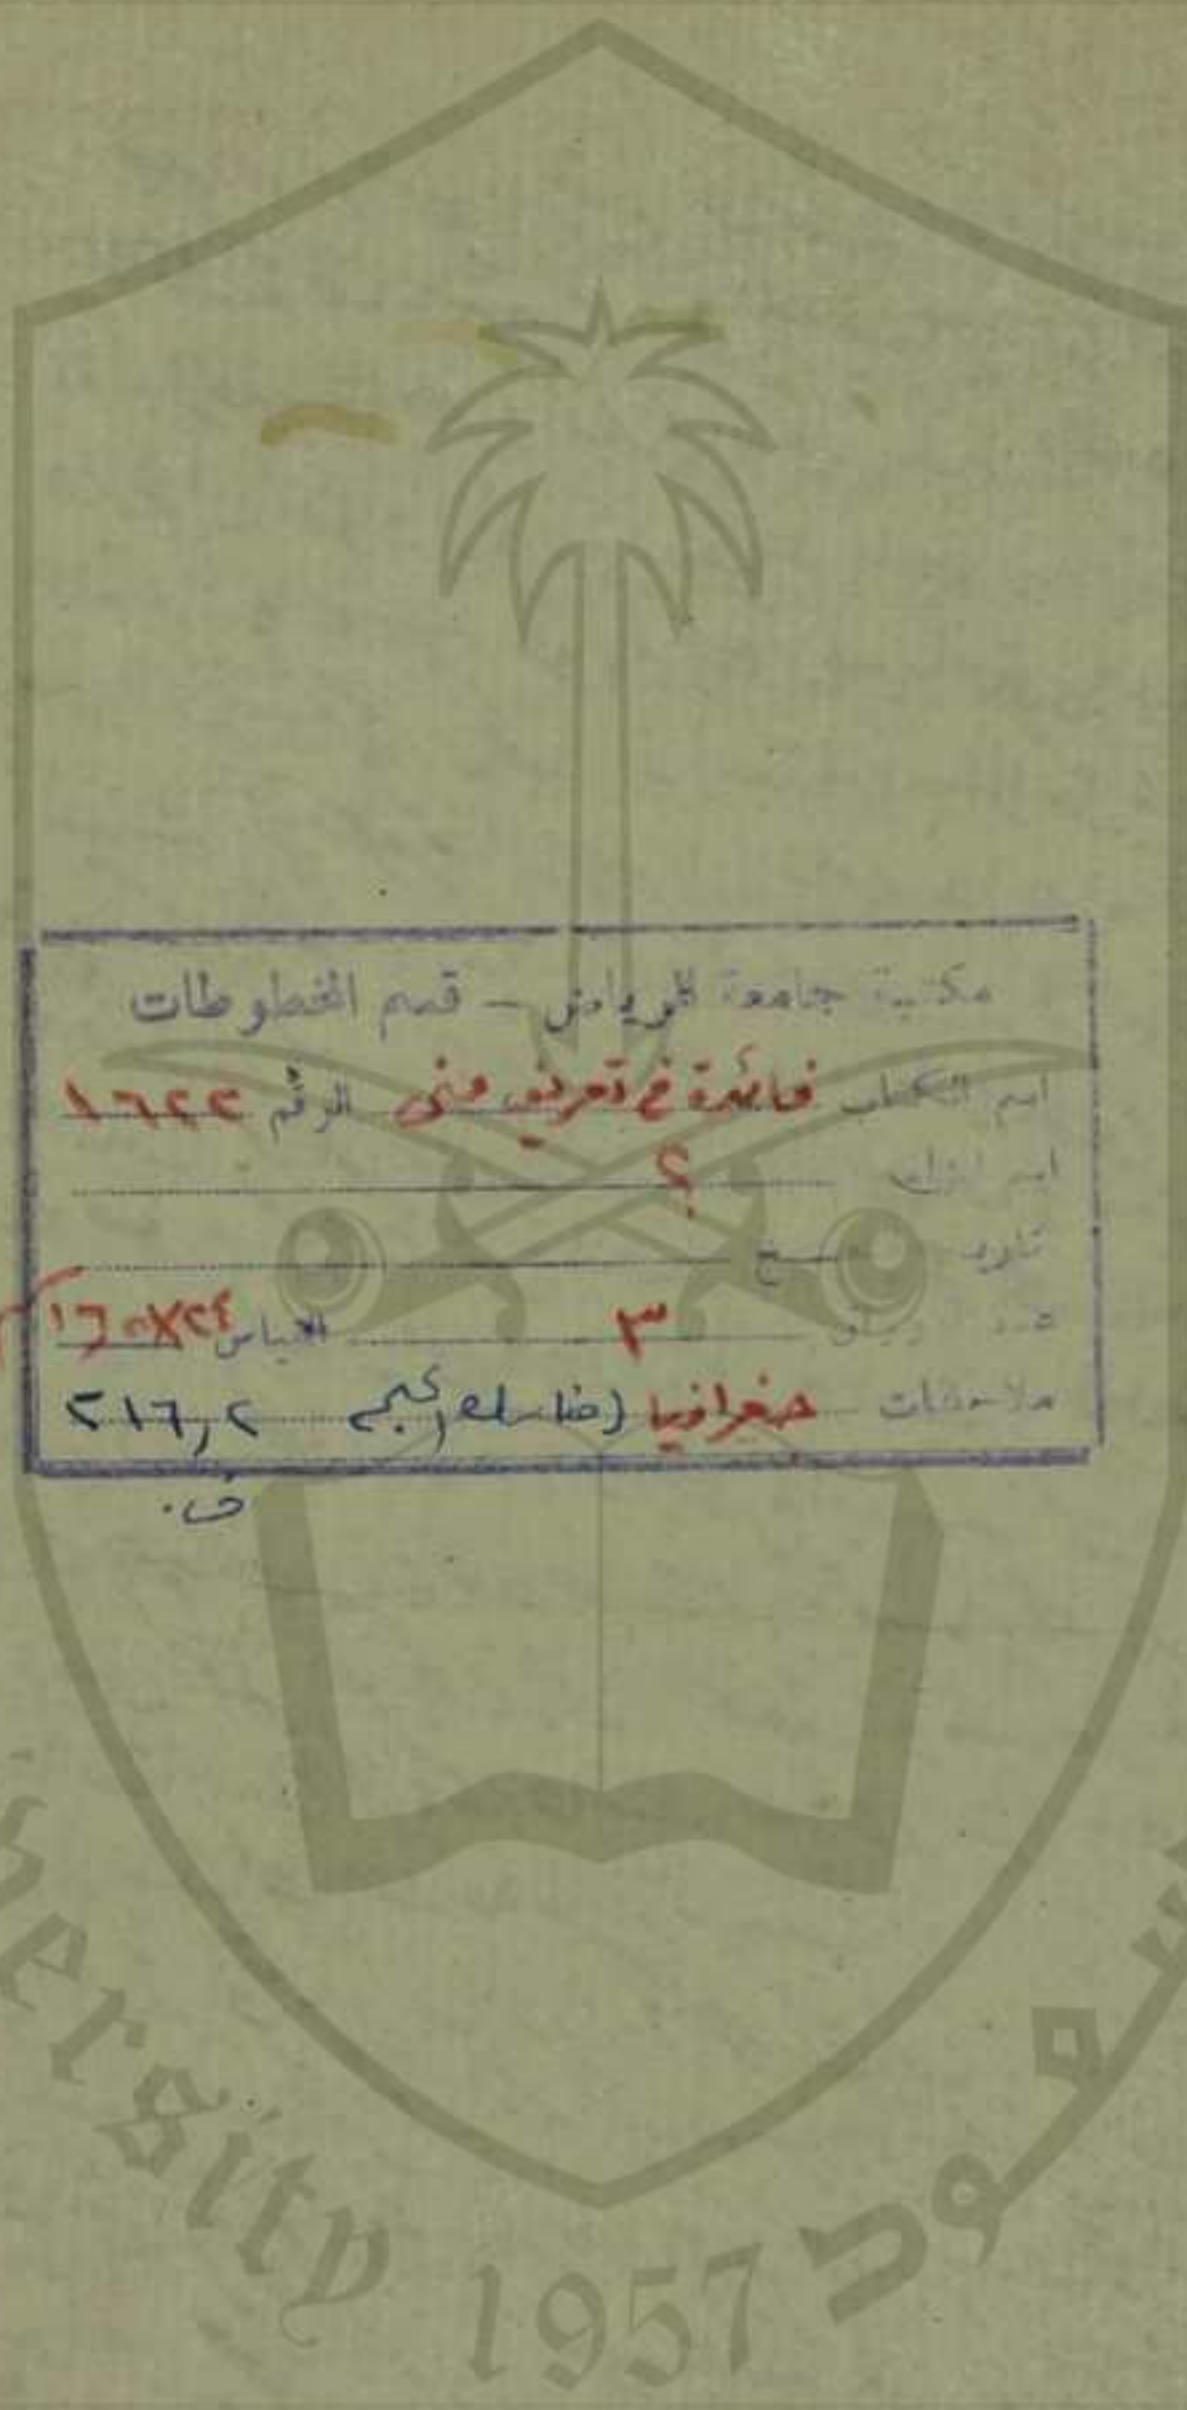 مكتبة جامعة الرياض - قسم المخطوطات
اسم الكتاب فائدة في تعريف منى الرقم ١٦٢٢
اسم المؤلف ؟
تاريخ النسخ
عدد الأوراق ٣ القياس ١٦٫٥×٢٤
ملاحظات جغرافيا (مناسك الحج) ٢١٦٫٢
ف.
ersity 1957 سعود